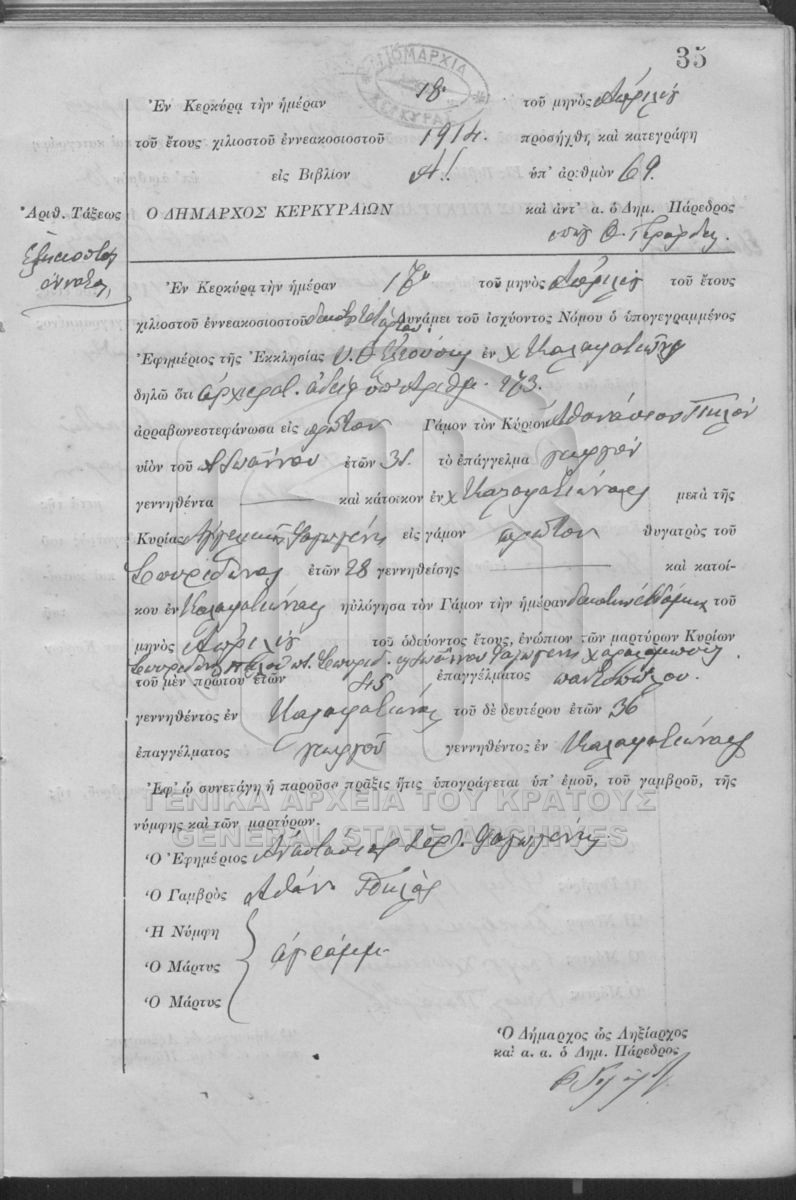 35
ΔΗΜΑΡΧΙΑ ΚΕΡΚΥΡΑΣ
Ἐν Κερκύρᾳ τὴν ἡμέραν 18 τοῦ μηνὸς Ἀπριλίου
τοῦ ἔτους χιλιοστοῦ ἐννεακοσιοστοῦ 1914. προσήχθη καὶ κατεγράφη
εἰς Βιβλίον Α! ὑπ' ἀριθμὸν 69
Ἀριθ. Τάξεως
Ο ΔΗΜΑΡΧΟΣ ΚΕΡΚΥΡΑΙΩΝ καὶ ἀντ' α. ὁ Δημ. Πάρεδρος
Ἑξηκοστὸς
ἔννατος
Ἐν Κερκύρᾳ τὴν ἡμέραν 17 τοῦ μηνὸς Ἀπριλίου τοῦ ἔτους
χιλιοστοῦ ἐννεακοσιοστοῦ δεκάτου τετάρτου Δυνάμει τοῦ ἰσχύοντος Νόμου ὁ ὑπογεγραμμένος
Ἐφημέριος τῆς Ἐκκλησίας ἐν χ Καλαφατιώναις
δηλῶ ὅτι ἀρχιερατ. ἀδείᾳ ὑπ' ἀριθμ. 973.
ἀρραβωνεστεφάνωσα εἰς πρῶτον Γάμον τὸν Κύριον Ἀθανάσιον Πηλὸν
υἱὸν τοῦ Ἰωάννου ἐτῶν 31 τὸ ἐπάγγελμα γεωργὸν
γεννηθέντα καὶ κάτοικον ἐν χ Καλαφατιώναις μετὰ τῆς
Κυρίας Ἀγγελικῆς εἰς γάμον πρῶτον θυγατρὸς τοῦ
Σπυρίδωνος ἐτῶν 28 γεννηθείσης καὶ κατοί-
κου ἐν Καλαφατιώναις ηὐλόγησα τὸν Γάμον τὴν ἡμέραν δεκάτην ἑβδόμην τοῦ
μηνὸς Ἀπριλίου τοῦ ὁδεύοντος ἔτους, ἐνώπιον τῶν μαρτύρων Κυρίων
τοῦ μὲν πρώτου ἐτῶν 45 ἐπαγγέλματος παντοπώλου.
γεννηθέντος ἐν Καλαφατιώναις τοῦ δὲ δευτέρου ἐτῶν 36
ἐπαγγέλματος γεωργοῦ γεννηθέντος ἐν Καλαφατιώναις
Ἐφ' ᾧ συνετάγη ἡ παροῦσα πρᾶξις ἥτις ὑπογράφεται ὑπ' ἐμοῦ, τοῦ γαμβροῦ, τῆς
ΓΕΝΙΚΑ ΑΡΧΕΙΑ ΤΟΥ ΚΡΑΤΟΥΣ
νύμφης καὶ τῶν μαρτύρων.
GENERAL STATE ARCHIVES
Ὁ Ἐφημέριος Ἀναστάσιος Ἱερ.
Ὁ Γαμβρὸς Ἀθάν. Πηλὸς
Ἡ Νύμφη
Ὁ Μάρτυς ἀγράμμ.
Ὁ Μάρτυς
Ὁ Δήμαρχος ὡς Ληξίαρχος
καὶ α. α. ὁ Δημ. Πάρεδρος